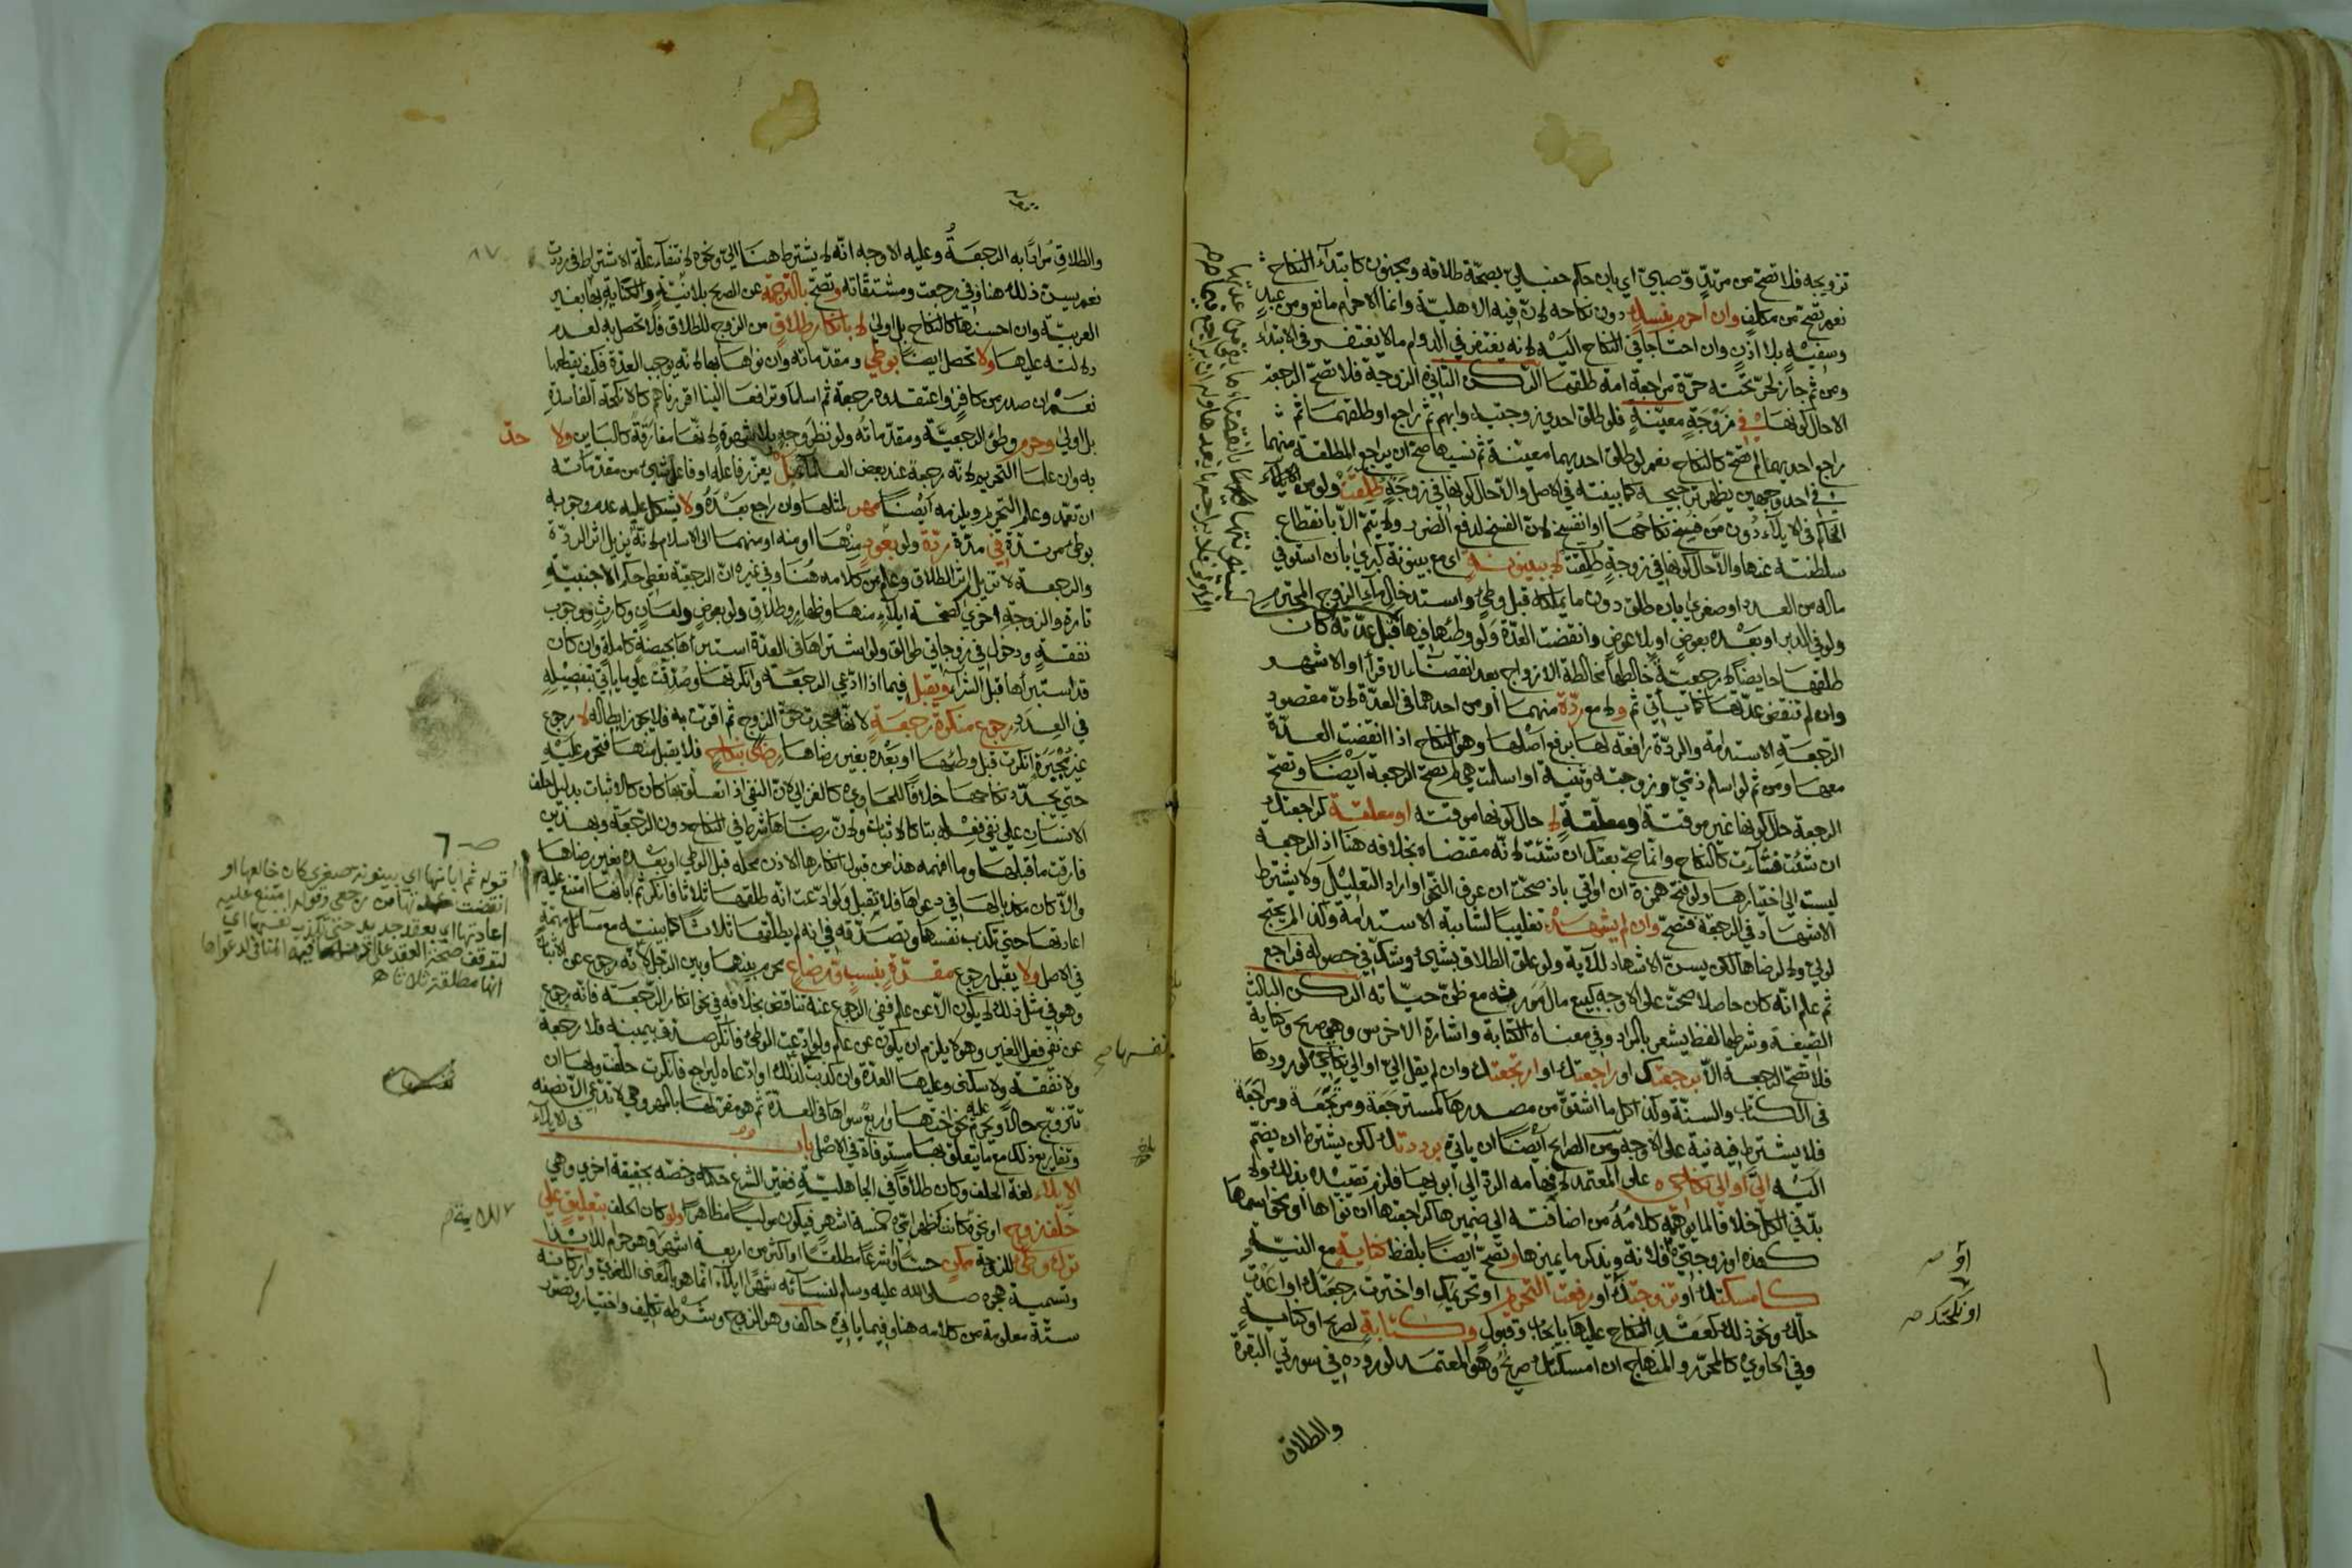 تزويجه فلا تصح من مرتد وصبي اي بان حكم حنبلي بصحة طلاقه ومجنون كابتداء النكاح
نعم تصح من مكلف وان احرم بنسك دون نكاحه لان فيه الاهلية وانما الاحرام مانع ومن عبد
وسفيه بلا اذن وان احتاجا في النكاح اليه لانه يغتفر في الدوام مالا يغتفر في الابتداء
ومن ثم جاز لحر تحته حرة مراجعة امة طلقها الركن الثاني الزوجة فلا تصح الرجعة
الا حال كونها في زوجة معينة فلو طلق احدي زوجتيه وابهم ثم راجع او طلقهما ثم
راجع احديهما لم تصح كالنكاح نعم لو طلق احديهما معينة ثم نسيها صح ان يراجع المطلقة منهما
في احد وجهين يظهر ترجيحه كما بينته في الاصل والا حال كونها في زوجة طلقت ولو من
الحاكم في الايلاء دون من فسخ نكاحها او انفسخ لان الفسخ لدفع الضرر ولا يتم الا بانقطاع
سلطنته عنها والا حال كونها في زوجة طلقت لا ببينونة اي مع بينونة كبري بان استوفي
ماله من العدد او صغري بان طلق دون ما يملكه قبل وطئ واستدخال ماء الزوج المحترم
ولو في الدبر او بعده بعوض او بلا عوض وانقضت العدة ولو وطئها فيها قبل عدته كان
طلقها حايضا لا رجعت خالطها مخالطة الازواج بعد انقضاء الاقراء او الاشهر
وان لم تنقض عدتها كما سيأتي ثم ولا مع ردة منهما او من احدهما في العدة لان مقصود
الرجعة الاستدامة والردة رافعة لها برفع اصلها وهو النكاح اذا انقضت العدة
معها ومن ثم لو اسلم ذمي وزوجته وثنية او اسلمت هي لم تصح الرجعة ايضا وتصح
الرجعة حال كونها غير موقتة ومعلقة لا حال كونها موقتة او معلقة كراجعتك
ان شئت فشاءت كالنكاح وانما صح بعتك ان شئت لانه مقتضاه بخلافه هنا اذ الرجعة
ليست الي اختيارها ولو فتح همزة ان او اتي باذ صحت ان عرف النحو او اراد التعليل ولا يشترط
الاشهاد في الرجعة فتصح وان لم يشهد تغليبا لشائبة الاستدامة ولذا لم يحتج
لولي ولا لرضاها لكن يسن الاشهاد للآية ولو علق الطلاق بشيئ وشك في حصوله فراجع
ثم علم انه كان حاصلا صحت على الاوجه كبيع مال مورثه مع ظن حياته الركن الثالث
الصيغة وشرطها لفظ يشعر بالمراد وفي معناه الكتابة واشارة الاخرس وهي صريح وكناية
فلا تصح الرجعة الا برجعتك او راجعتك او ارتجعتك وان لم يقل الي او الي نكاحي لورودها
في الكتاب والسنة وكذا كل ما اشتق من مصدرها كمسترجعة ومرتجعة ومراجعة
فلا يشترط فيه نية على الاوجه ومن الصرايح ايضا ان ياتي برددتك لكن يشترط ان يضم
اليه الي او الي نكاحي على المعتمد لايهامه الرد الي ابويها فلزم تقييده بذلك ولا
بد في الكل خلافا لما يوهمه كلامه من اضافته الي ضميرها كراجعتها ان نواها او نحو اسمها
كهذه او زوجتي فلانة ويذكر ما يميزها وتصح ايضا بلفظ كناية مع النية
كامسكتك او تزوجتك او رفعت التحريم او تحريمك او اخترت رجعتك او اعدت
حلك ونحو ذلك كعقد النكاح عليها بايجاب وقبول وكتابة لصريح او كناية
وفي الحاوي كالمحرر والمنهاج ان امسكتك صريح وهو المعتمد لوروده في سورتي البقرة
والطلاق
او
او نكحتك صح
والطلاق مرادا به الرجعة وعليه الاوجه انه لا يشترط هنا الي ونحوه لانتفاء علة الاشتراط في رددت
نعم يسن ذلك هنا وفي رجعت ومشتقاته وتصح بالترجمة عن الصريح بلا نية والكناية بها بغير
العربية وان احسنها كالنكاح بل اولي لا بانكار طلاق من الزوج للطلاق فلا تحصل به لعدم
دلالته عليها ولا تحصل ايضا بوطي ومقدماته وان نواها بها لانه يوجب العدة فكيف يقطعها
نعم ان صدر من كافر واعتقدوه رجعة ثم اسلما وترافعا الينا اقررناهم كالانكحة الفاسدة
بل اولي وحرم وطؤ الرجعية ومقدماته ولو نظر وجه بلا شهوة لانها مفارقة كالباين ولا حد
به وان علما التحريم لانه رجعة عند بعض العلماء بل يعزر فاعله او فاعل شيئ من مقدماته
ان تعمد وعلم التحريم ويلزمه ايضا مهر لمثلها وان راجع بعده ولا يشكل عليه عدم وجوبه
بوطئ مرتدة في مدة ردة ولو بعود منها او منه او منهما الي الاسلام لانه يزيل اثر الردة
والرجعة لا تزيل اثر الطلاق وعلم من كلامه هنا وفي غيره ان الرجعية تعطي حكم الاجنبية
تارة والزوجة اخري كصحة ايلاء منها وظهار وطلاق ولو بعوض ولعان وكارث ووجوب
نفقة ودخول في زوجاتي طوالق ولو اشتراها في العدة استبرأها بحيضة كاملة وان كان
قد استبرأها قبل الشراء ويقبل فيما اذا ادعي الرجعة وانكرتها وصدقت على ما ياتي تفصيله
في العدد رجوع منكرة رجعة لانها جحدت حق الزوج ثم اقرت به فلا يجوز ابطاله لا رجوع
غير مجبرة انكرت قبل وطئها او بعده بغير رضاها رضي بنكاح فلا يقبل منها فتحرم عليه
حتي يجدد نكاحها خلافا للحاوي كالغزالي لان النفي اذا تعلق بها كان كالاثبات بدليل حلف
الانسان علي نفي فعله بتا كالاثبات ولان رضاها شرط في النكاح دون الرجعة وبهذين
فارقت ما قبلها وما افهمه هذا من قبول انكارها الاذن محله قبل الوطي او بعده بغير رضاها
والا كان مكذبا لها في دعواها فلا تقبل ولو ادعت انه طلقها ثلاثا فانكر ثم ابانها امتنع عليه
اعادتها حتي تكذب نفسها وتصدقه في انه لم يطلقها ثلاثا كما بينته مع مسائل مهمة
في الاصل ولا يقبل رجوع مقرة بنسب ورضاع محرم بينها وبين الرجل لانه رجوع عن الاثبات
وهو في مثل ذلك لا يكون الا عن علم ففي الرجوع عنه تناقض بخلافه في نحو انكار الرجعة فانه رجوع
عن نفي فعل الغير وهو لا يلزم ان يكون عن علم ولو ادعت الوطئ فانكر صدق بيمينه فلا رجعة
ولا نفقة ولا سكني وعليها العدة وان كذبت لذلك او ادعاه ليراجع فانكرت حلفت ولها ان
تتزوج حالا ويحرم عليه نحو اختها واربع سواها في العدة ثم هو مقر لها بالمهر وهي لا تدعي الا نصفه
وتفاريع ذلك مع ما يتعلق بها مستوفاة في الاصل باب في الايلاء
الايلاء لغة الحلف وكان طلاقا في الجاهلية فغير الشرع حكمه وخصه بحقيقة اخري وهي
حلف زوج او نحو كانت كظهر امي خمسة اشهر فيكون موليا مظاهرا ولو كان الحلف بتعليق علي
ترك وطي للزوجة ممكن حسا وشرعا مطلقا او اكثر من اربعة اشهر وهو حرام للايذا
وتسمية هجره صلى الله عليه وسلم لنسائه شهرا ايلاء انما هو بالمعني اللغوي واركانه
ستة معلومة من كلامه هنا وفيما ياتي حالف وهو الزوج وشرطه تكليف واختيار وتصور
قوله ثم ابانها اي بينونة صغري كان خالعها او
انقضت عدتها من رجعي وقوله امتنع عليه
اعادتها اي بعقد جديد حتي تكذب نفسها اي
لتوقف صحة العقد على المنافي لدعواها
انها مطلقة ثلاثا
نفسها صح
للاية